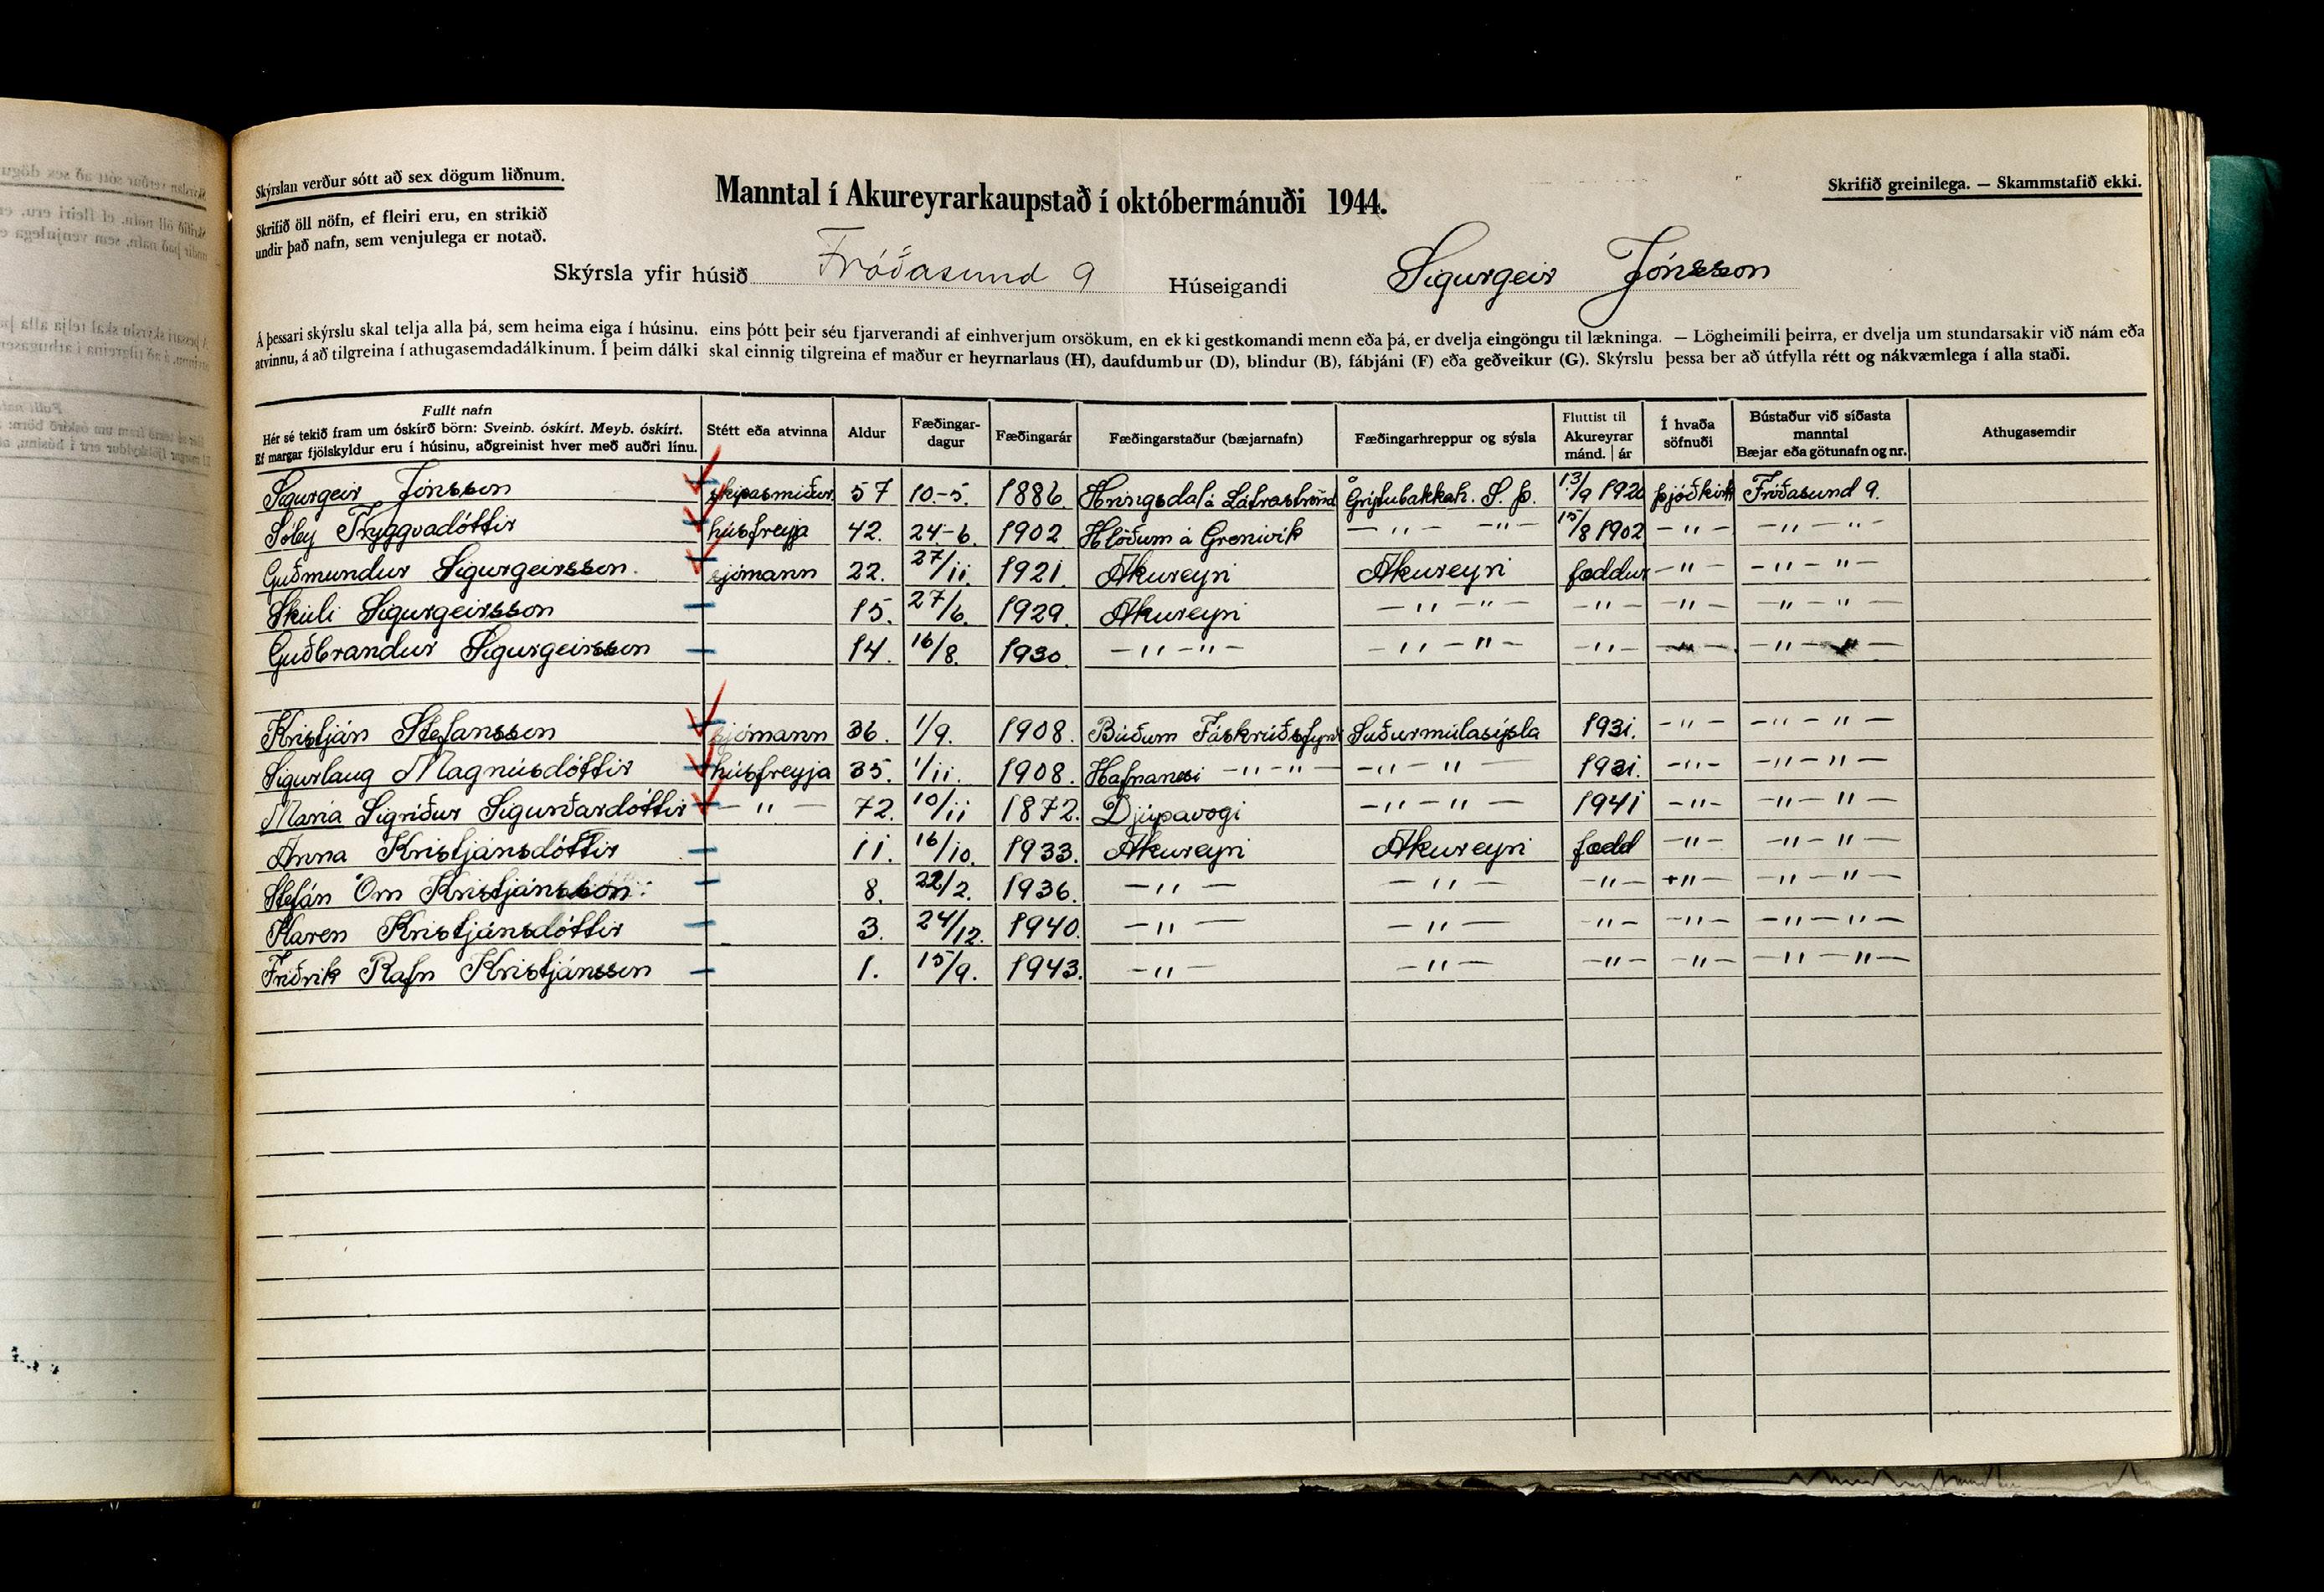 Skýrslan verður sótt að sex dögum liðnum.
Skrifið öll nöfn, ef fleiri eru, en strikið
undir það nafn, sem venjulega er notað.
Manntal í Akureyrarkaupstað í októbermánuði 1944.
Skrifið greinilega. — Skammstafið ekki.
Skýrsla yfir húsið Fróðasund 9 Húseigandi Sigurgeir Jónsson
Á þessari skýrslu skal telja alla þá, sem heima eiga í húsinu, eins þótt þeir séu fjarverandi af einhverjum orsökum, en ekki gestkomandi menn eða þá, er dvelja eingöngu til lækninga. — Lögheimili þeirra, er dvelja um stundarsakir við nám eða
atvinnu, á að tilgreina í athugasemdadálkinum. Í þeim dálki skal einnig tilgreina ef maður er heyrnarlaus (H), daufdumbur (D), blindur (B), fábjáni (F) eða geðveikur (G). Skýrslu þessa ber að útfylla rétt og nákvæmlega í alla staði.
Fullt nafn
Hér sé tekið fram um óskírð börn: Sveinb. óskírt. Meyb. óskírt.
Ef margar fjölskyldur eru í húsinu, aðgreinist hver með auðri línu.
Stétt eða atvinna
Aldur
Fæðingar-
dagur
Fæðingarár
Fæðingarstaður (bæjarnafn)
Fæðingarhreppur og sýsla
Fluttist til
Akureyrar
mánd. | ár
Í hvaða
söfnuði
Bústaður við síðasta
manntal
Bæjar eða götunafn og nr.
Athugasemdir
Sigurgeir Jónsson skipasmiður 57 10.-5. 1886. Hringsdal á Látraströnd Grýtubakkah. S. Þ. 13/9 1920 þjóðkirk Fróðasund 9.
Sóley Tryggvadóttir húsfreyja 42. 24-6. 1902 Hlöðum á Grenivík — " — — " — 15/8 1902 — " — — " — " —
Guðmundur Sigurgeirsson. sjómann 22. 27/11. 1921. Akureyri Akureyri fæddur — " — — " — " —
Skúli Sigurgeirsson 15. 27/6. 1929. Akureyri — " — " — — " — — " — — " — " —
Guðbrandur Sigurgeirsson 14. 16/8. 1930. — " — " — — " — " — — " — — " — — " — " —
Kristján Stefánsson sjómann 36. 1/9. 1908. Búðum Fáskrúðsfyrði Suðurmúlasýsla 1931. — " — — " — " —
Sigurlaug Magnúsdóttir húsfreyja 35. 1/11. 1908. Hafnanesi — " — " — — " — " — 1931. — " — — " — " —
María Sigríður Sigurðardóttir — " — 72. 10/11 1872. Djúpavogi — " — " — 1941 — " — — " — " —
Anna Kristjánsdóttir 11. 16/10. 1933. Akureyri Akureyri fædd — " — — " — " —
Stefán Örn Kristjánsson. 8. 22/2. 1936. — " — — " — — " — — " — — " — " —
Karen Kristjánsdóttir 3. 24/12. 1940. — " — — " — — " — — " — — " — " —
Friðrik Rafn Kristjánsson 1. 15/9. 1943. — " — — " — — " — — " — — " — " —